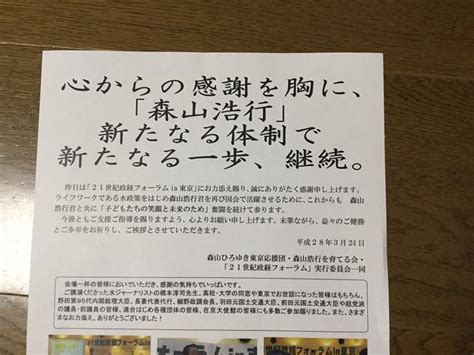 心からの感謝を胸に、
「森山浩行」
新たなる体制で
新たなる一歩、継続。
昨日は「21世紀政経フォーラム in 東京」にお力添え賜り、誠にありがたく感謝申し上げます。
ライフワークである水政策をはじめとする森山浩行君を再び国会で活躍させるために、これからも 森山
浩行君と共に「子どもたちの笑顔と未来のため」奮闘を続けて参ります。
今後ともご支援ご指導を賜りますよう、心よりお願い申します。末筆ながら、益々のご健勝
とご多幸をお祈りし、ご挨拶とさせていただきます。
平成28年3月24日
森山ひろゆき東京応援団・森山浩行を育てる会・
「21世紀政経フォーラム」実行委員会一同
会場一杯の皆様においでいただき、感謝の気持ちでいっぱいです。
ご講演くださった水ジャーナリストの橋本淳司先生、高校・大学の同窓や東京でお世話になった皆様はもちろん、
野田第95代内閣総理大臣、長妻代表代行、細野政調会長、羽田元国土交通大臣、前田元国土交通大臣や超党派
の議員・前議員の皆様、連合はじめ各種団体の皆様、在京大使館の皆様にも多数ご参加賜りました。また、さまざ
まなお力添え、ありがとうございました!